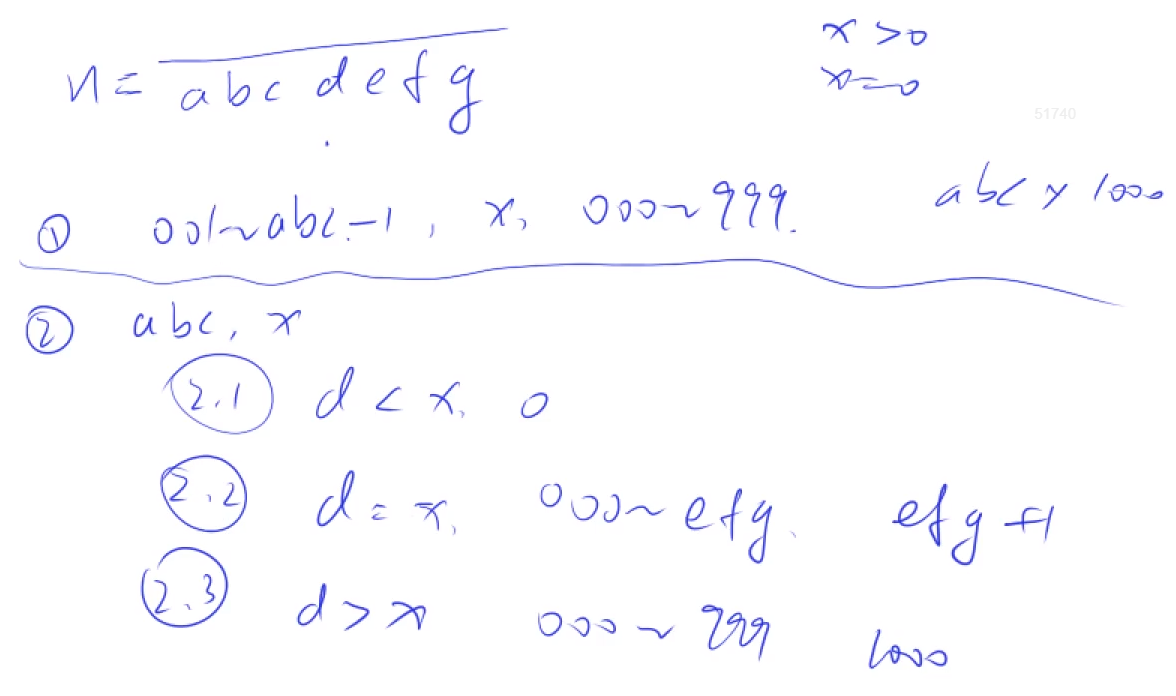 n = abc defg
x > 0
x = 0
51740
① 001~abc-1, x, 000~999. abc × 1000
② abc, x
2.1 d < x, 0
2.2 d = x, 000~efg. efg+1
2.3 d > x 000~999 1000